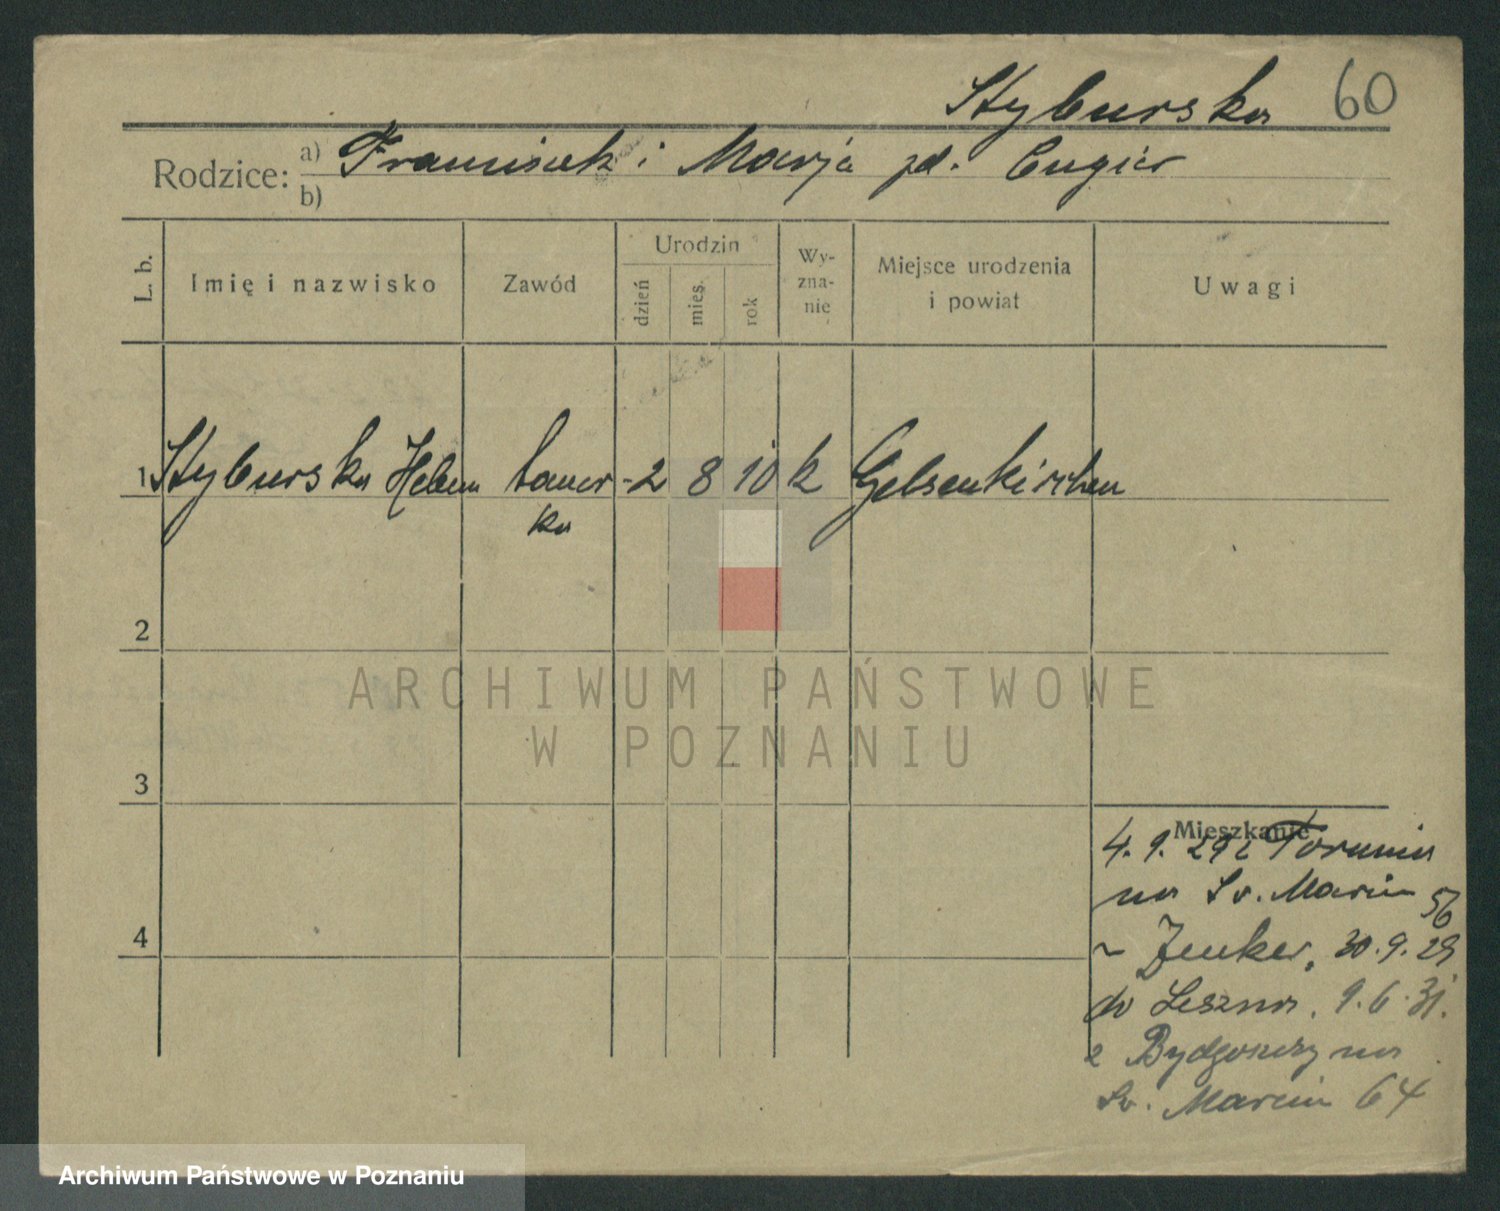 Styburska 60
Rodzice: a) Franciszek i Marja zd. Cugier
b)
L. b.
Imię i nazwisko
Zawód
Urodzin
dzień
mies.
rok
Wy-
zna-
nie
Miejsce urodzenia
i powiat
Uwagi
1 Styburska Helena tancer- 2 8 10 k Gelsenkirchen
ka
2
ARCHIWUM PAŃSTWOWE
W POZNANIU
3
Mieszkanie
4. 9. 29 z Torunia
na Św. Marcin 56
4
Zenker, 30. 9. 29
do Leszna. 9. 6. 31.
z Bydgoszczy na
Św. Marcin 64
Archiwum Państwowe w Poznaniu